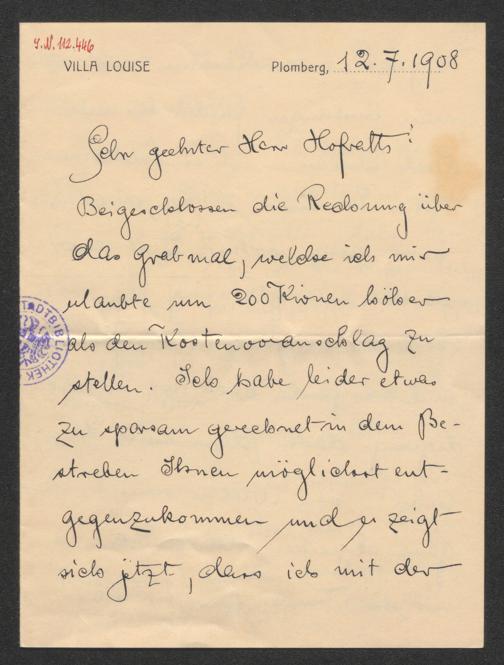 J.N. 112.446
VILLA LOUISE
Plomberg, 12.7.1908
Sehr geehrter Herr Hofrath!
Beigeschlossen die Rechnung über
das Grabmal, welche ich mir
erlaubte um 200 Kronen höher
als den Kostenvoranschlag zu
stellen. Ich habe leider etwas
zu sparsam gerechnet in dem Be-
streben Ihnen möglichst ent-
gegenzukommen und es zeigt
sich jetzt, dass ich mit der
STADTBIBLIOTHEK